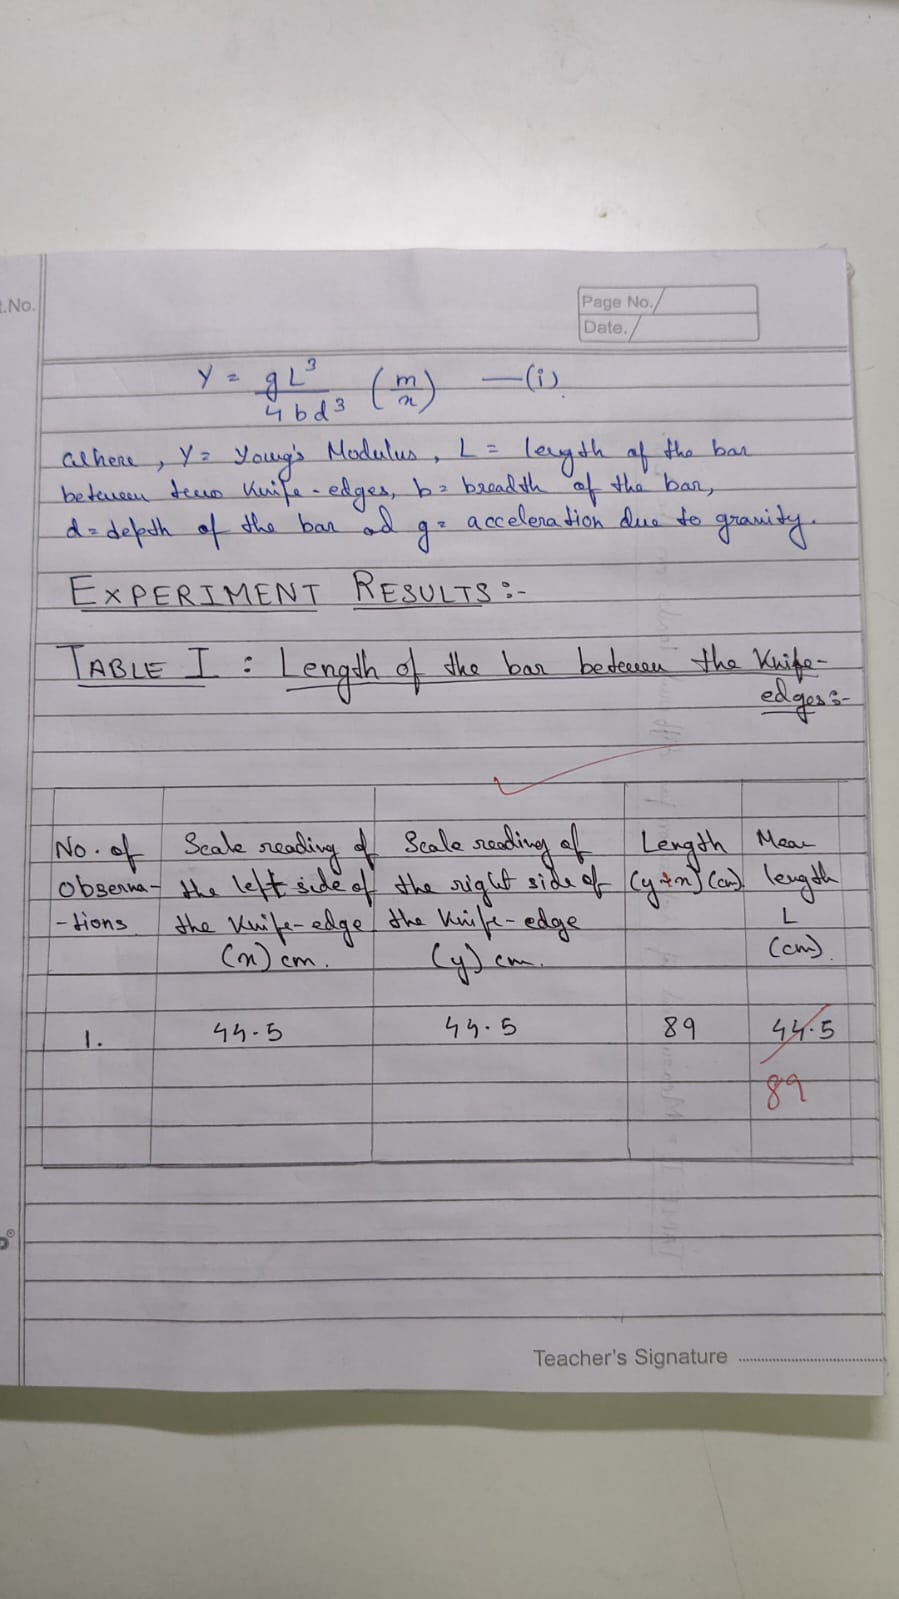 t.No.
Page No.
Date.
Y = gL³ / 4bd³ (m/x) —(i)
where, Y = Young's Modulus, L = length of the bar
between two Knife-edges, b = breadth of the bar,
d = depth of the bar ad g = acceleration due to gravity.
EXPERIMENT RESULTS :-
TABLE I : Length of the bar between the Knife-
edges :-
No. of Observa--tions
Scale reading of the left side of the Knife-edge (x) cm.
Scale reading of the right side of the Knife-edge (y) cm.
Length (y+x) (cm)
Mean length L (cm).
1. 44.5 44.5 89 44.5
89
Teacher's Signature